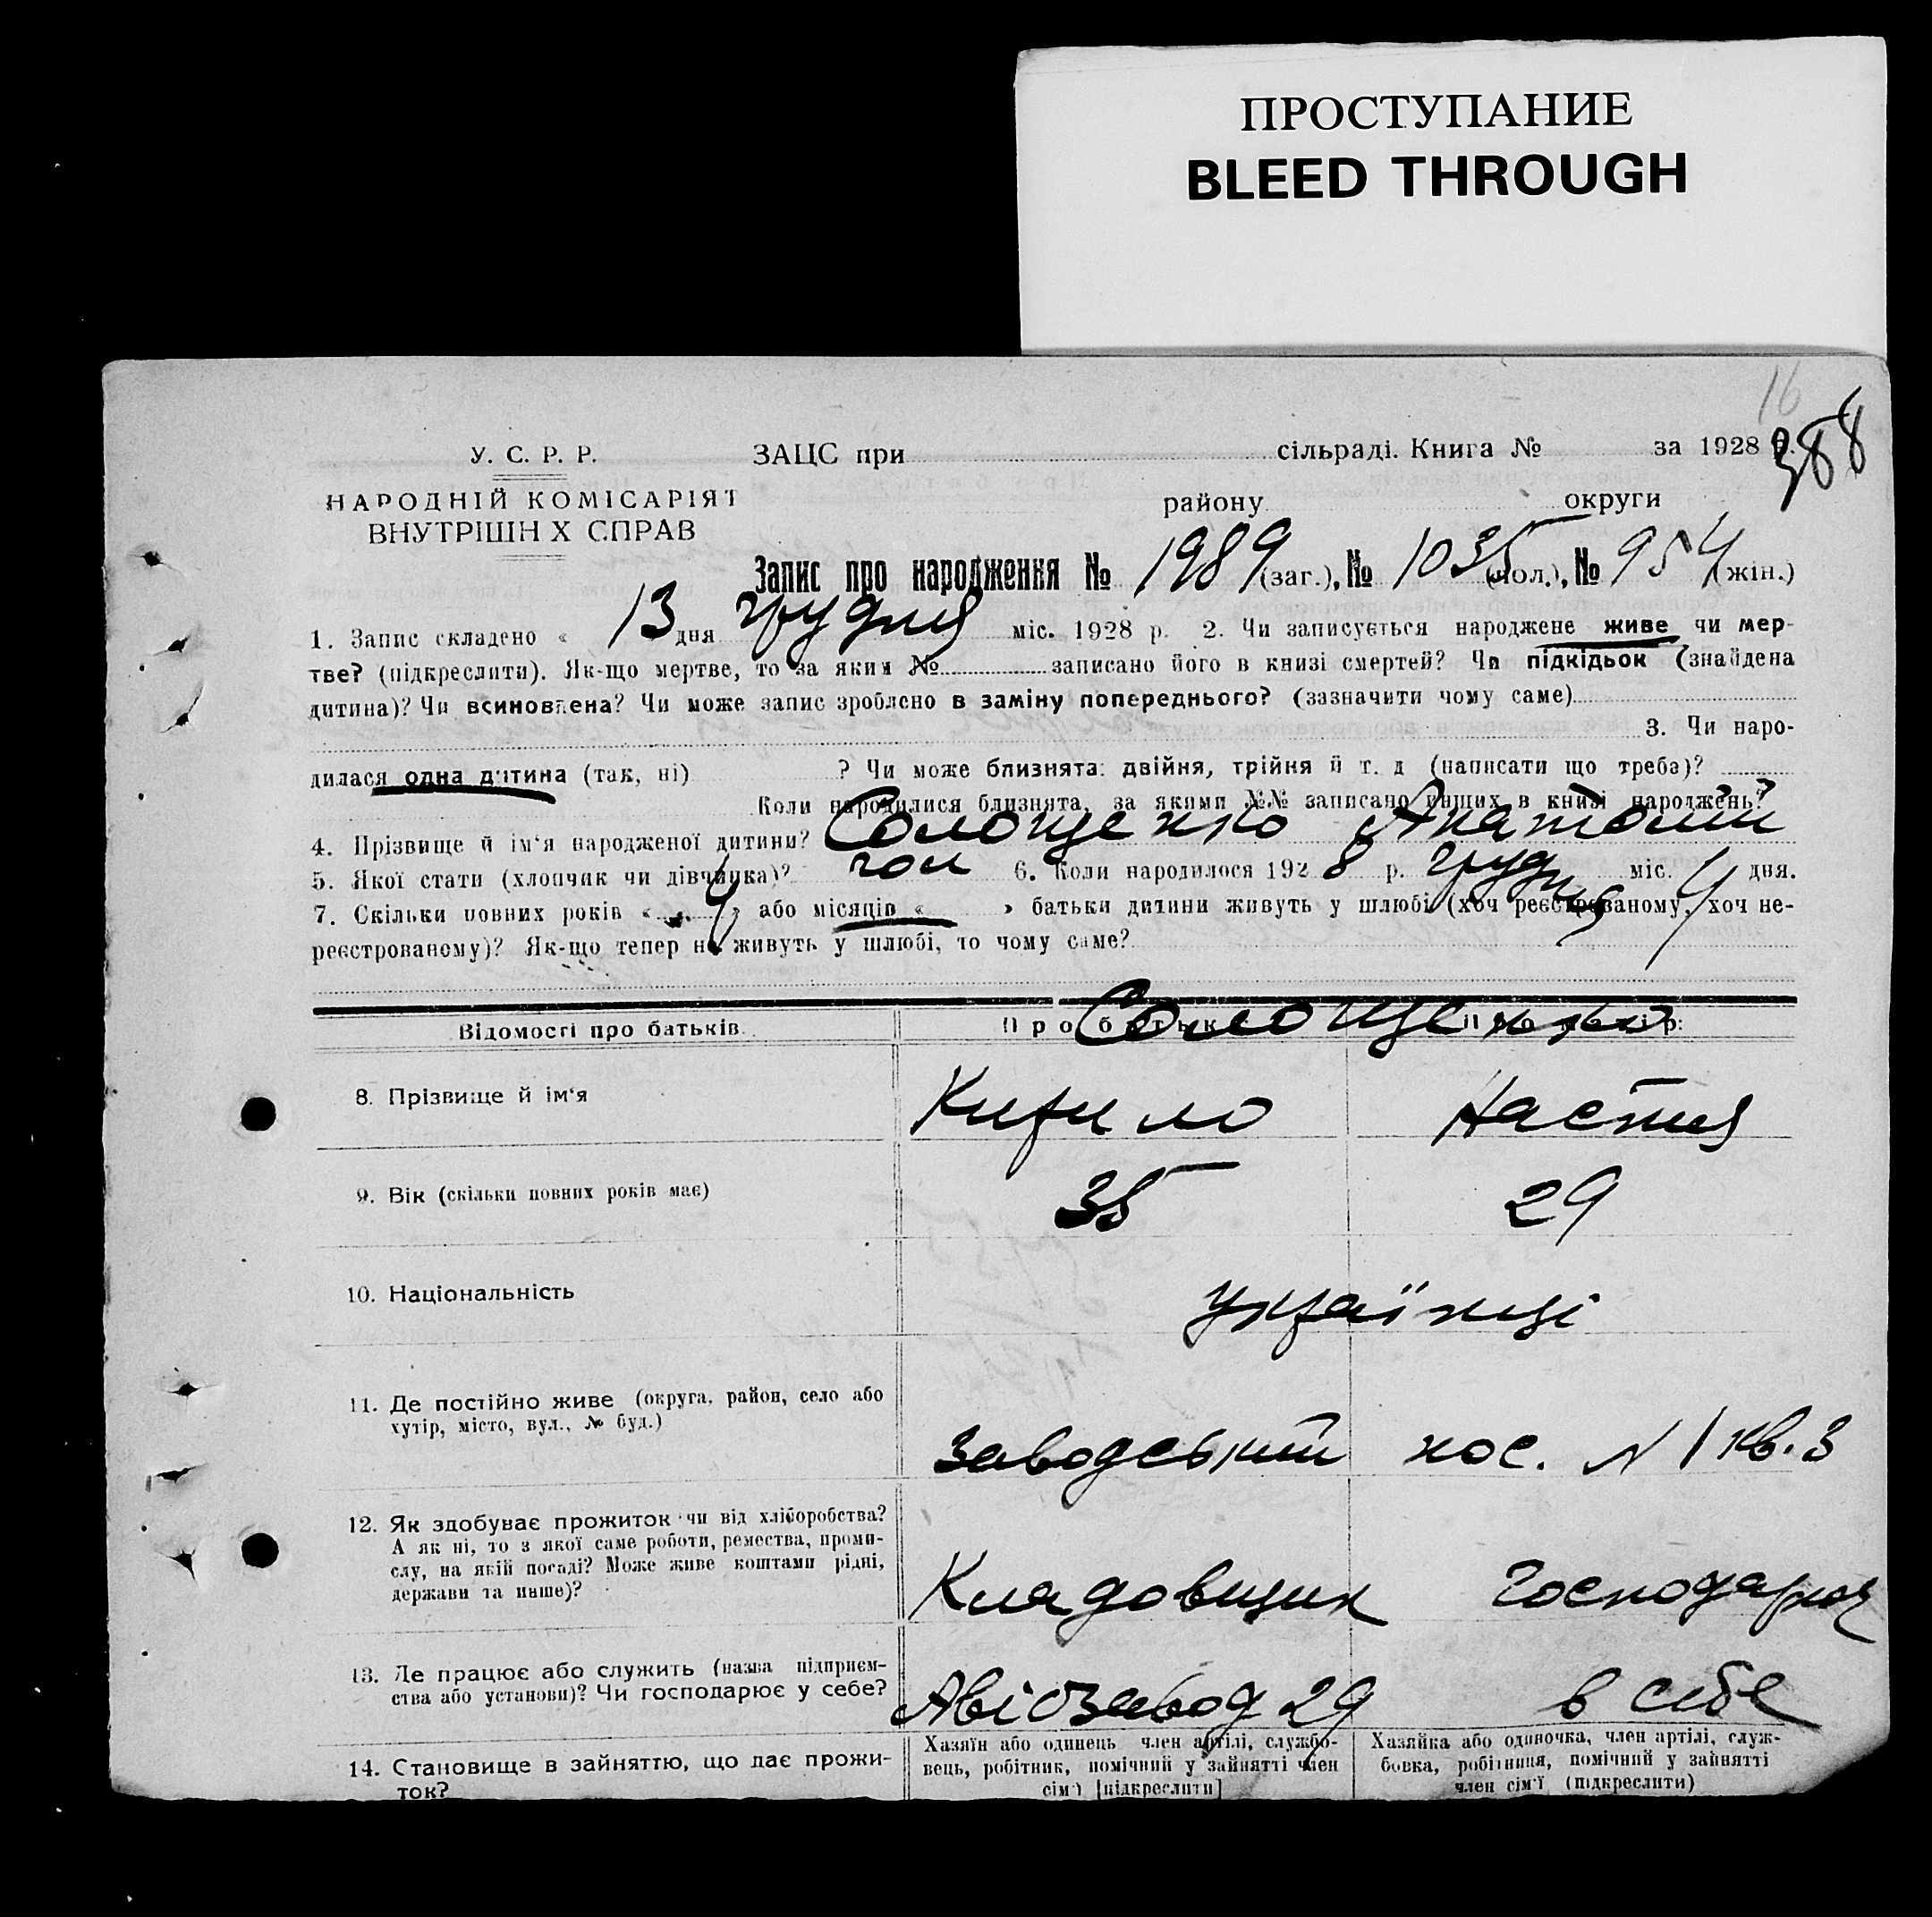 ПРОСТУПАНИЕ
BLEED THROUGH
16
388
У. С. Р. Р. ЗАЦС при сільраді. Книга № за 1928 р.
НАРОДНІЙ КОМІСАРІЯТ району округи
ВНУТРІШН Х СПРАВ
Запис про народження № 1989 (заг.), № 1035 (чол.), № 954 (жін.)
1. Запис складено « 13 дня грудня міс. 1928 р. 2. Чи записується народжене живе чи мер-
тве? (підкреслити). Як-що мертве, то за яким № записано його в книзі смертей? Чи підкідьок (знайдена
дитина)? Чи всиновлена? Чи може запис зроблено в заміну попереднього? (зазначити чому саме)
3. Чи наро-
дилася одна дитина (так, ні) ? Чи може близнята: двійня, трійня й т. д (написати що треба)?
Коли народилися близнята, за якими №№ записано инших в книзі народжень?
4. Прізвище й ім‘я народженої дитини? Солощенко Анатолий
5. Якої стати (хлопчик чи дівчинка)? чол 6. Коли народилося 1928 р. грудня міс. 4 дня.
7. Скільки повних років « 4 » або місяців « » батьки дитини живуть у шлюбі (хоч реєстрованому, хоч не-
реєстрованому)? Як-що тепер не живуть у шлюбі, то чому саме?
Відомості про батьків. Про батька Про матір:
Солощенко
8. Прізвище й ім‘я Кирило Настя
9. Вік (скільки повних років має) 35 29
10. Національність українці
11. Де постійно живе (округа, район, село або
хутір, місто, вул., № буд.)
Заводський пос. N 1 кв. 3
12. Як здобуває прожиток чи від хліборобства?
А як ні, то з якої саме роботи, ремества, проми-
слу, на якій посаді? Може живе коштами рідні,
держави та инше)?
Кладовщик господарка
13. Де працює або служить (назва підприєм-
ства або установи)? Чи господарює у себе?
Авіозавод 29 в себе
14. Становище в зайняттю, що дає прожи-
ток?
Хазяїн або одинець член артілі, службо-
вець, робітник, помічний у зайнятті член
сім‘ї [підкреслити]
Хазяйка або одиночка, член артілі, служ-
бовка, робітниця, помічний у зайнятті
член сім‘ї (підкреслити)